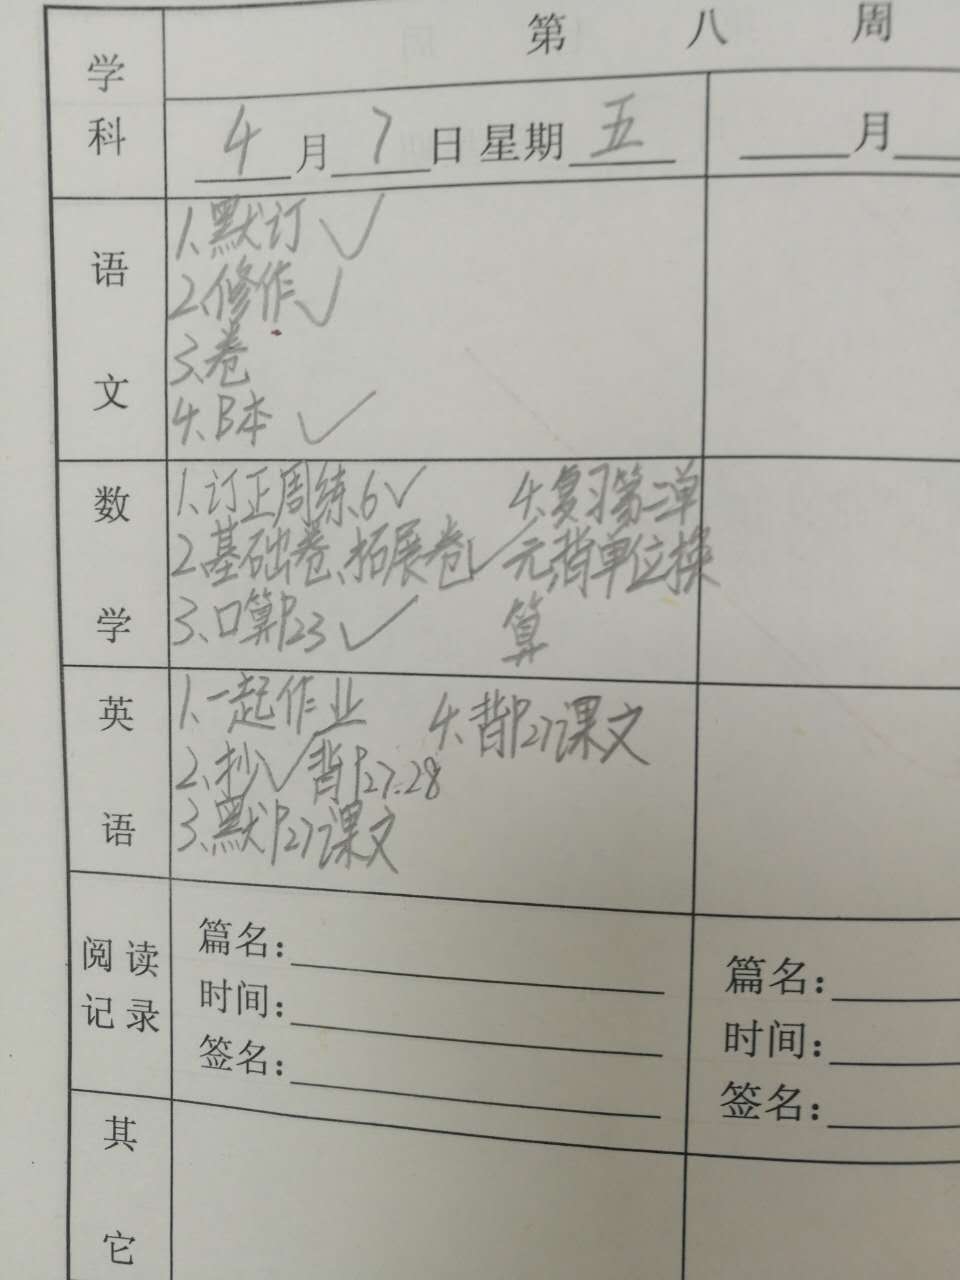 学科
第八周
4月7日星期五
月
语文
1.默订✓
2.修作✓
3.卷
4.B本✓
数学
1.订正周练6✓
2.基础卷、拓展卷✓
3.口算P23✓
4.复习第二单
元,背单位换
算
英语
1.一起作业
2.抄✓背P27.28
3.默P27课文
4.背P27课文
阅读
记录
篇名:
时间:
签名:
篇名:
时间:
签名:
其它